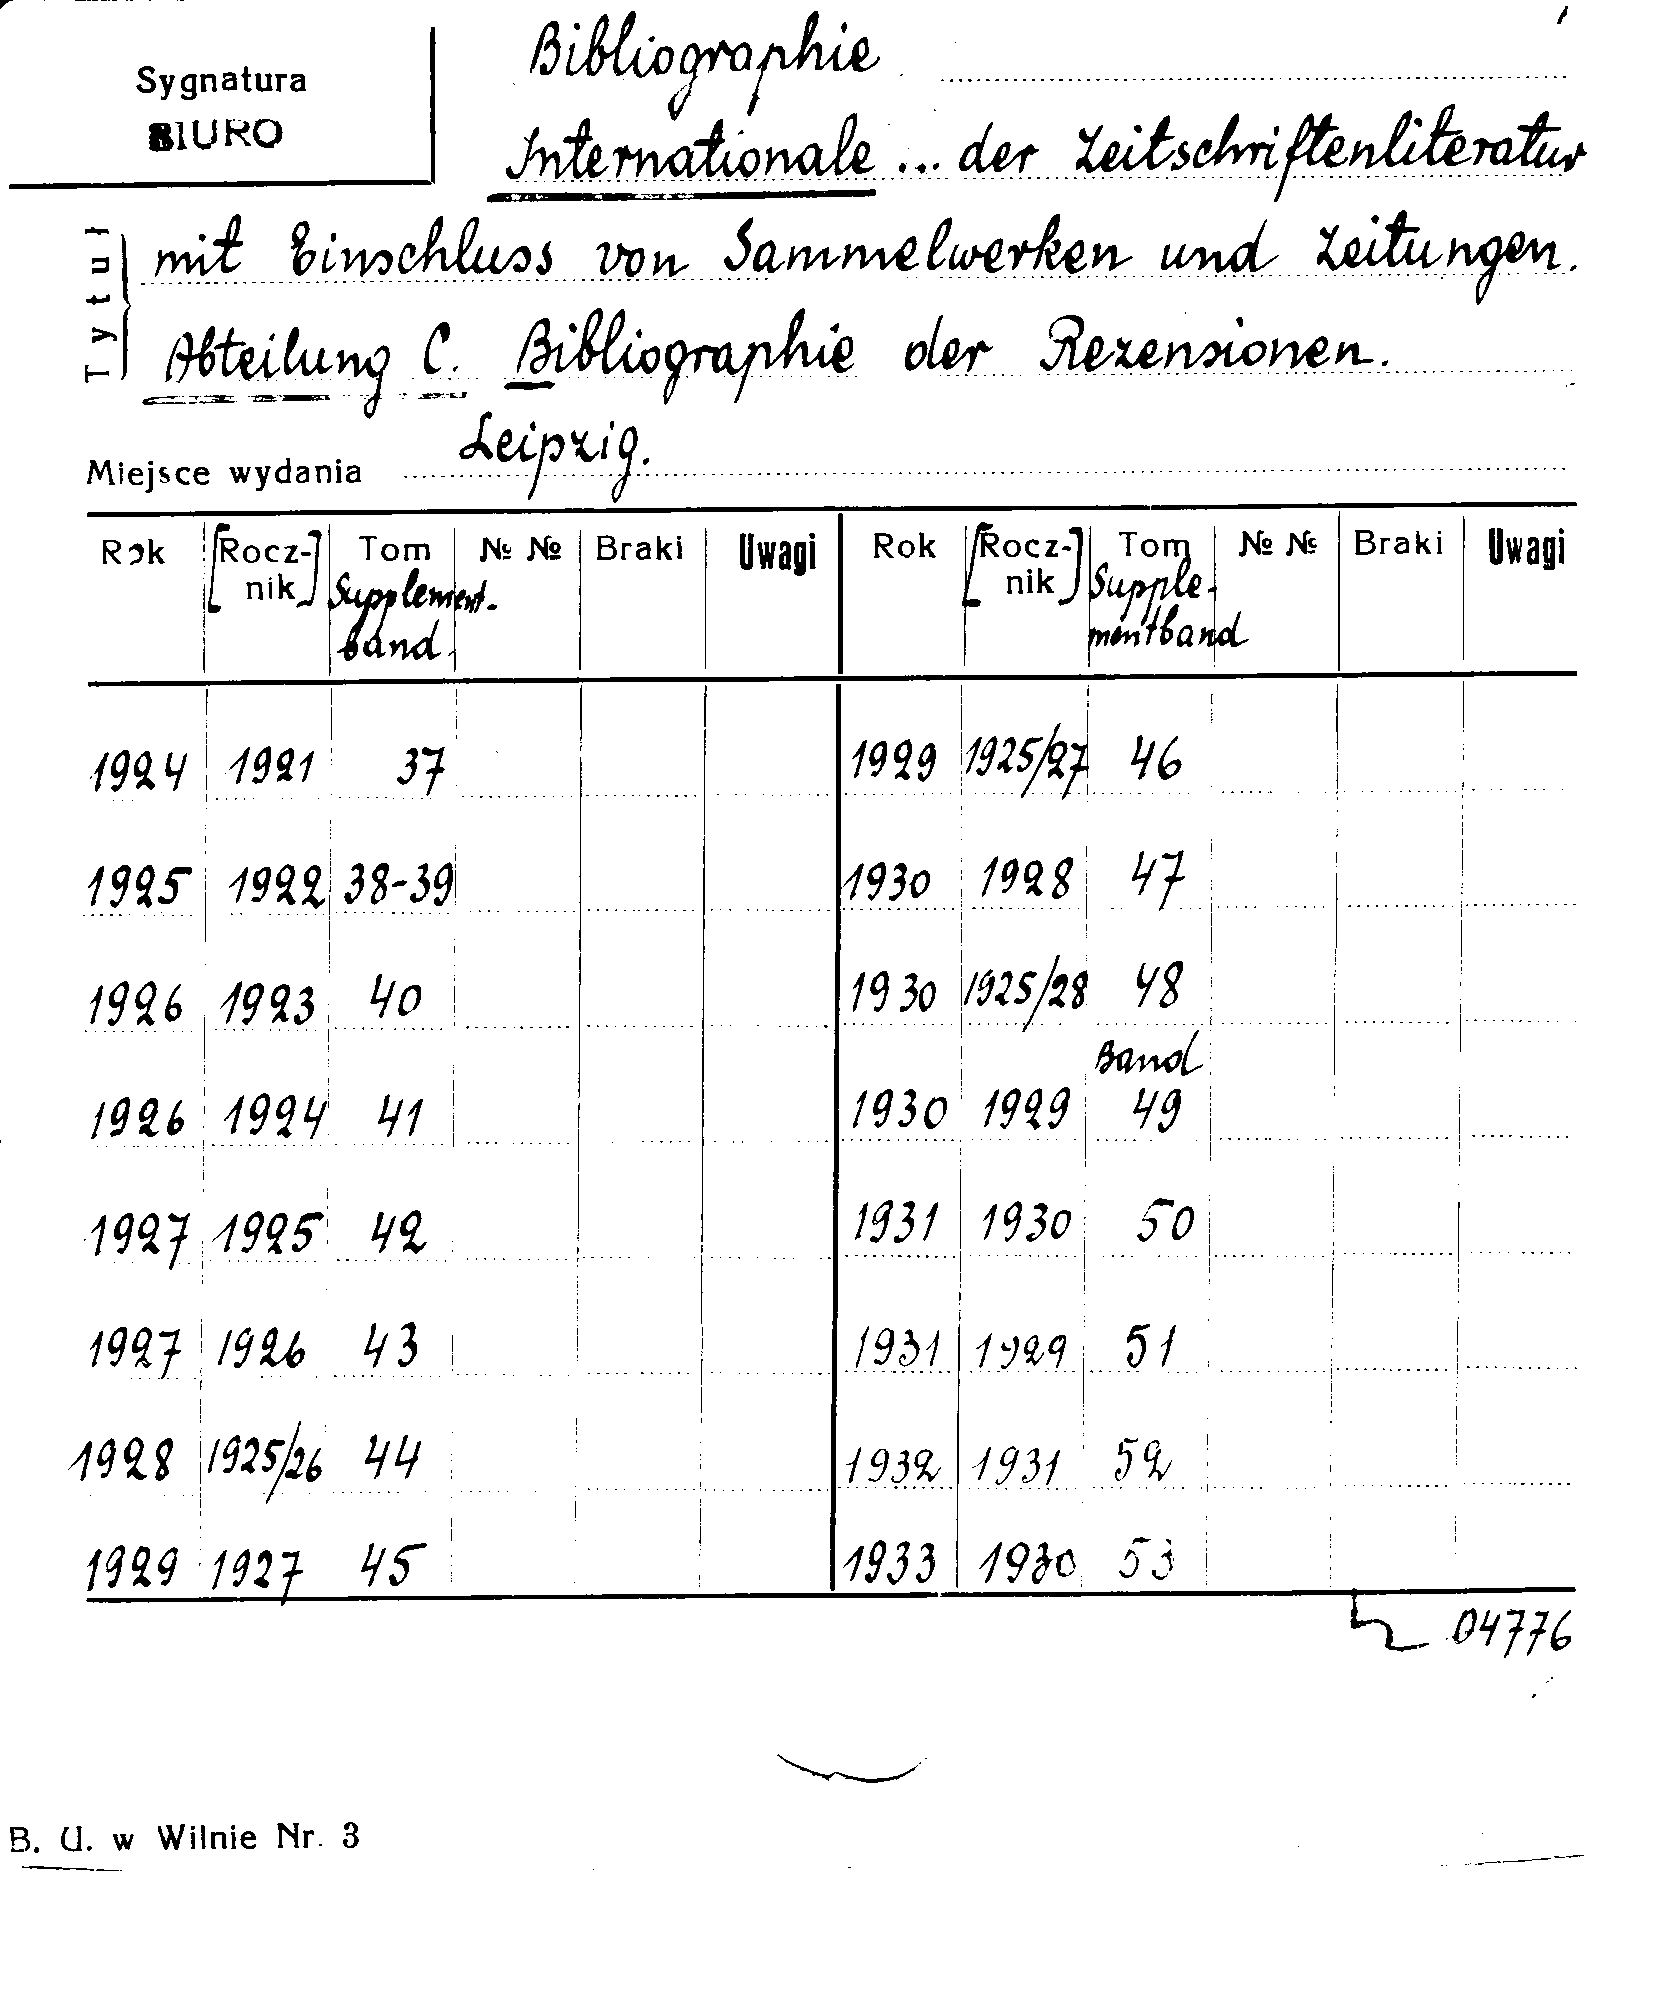 Sygnatura
BIURO
Bibliographie
Internationale ... der Zeitschriftenliteratur
Tytuł
mit Einschluss von Sammelwerken und Zeitungen.
Abteilung C. Bibliographie der Rezensionen.
Miejsce wydania Leipzig.
Rok [Rocz- Tom № № Braki Uwagi Rok [Rocz- Tom № № Braki Uwagi
nik] Supplement- nik] Supple-
band. mentband
1924 1921 37 1929 1925/27 46
1925 1922 38-39 1930 1928 47
1926 1923 40 1930 1925/28 48
Band
1926 1924 41 1930 1929 49
1927 1925 42 1931 1930 50
1927 1926 43 1931 1929 51
1928 1925/26 44 1932 1931 52
1929 1927 45 1933 1930 53
04776
B. U. w Wilnie Nr. 3